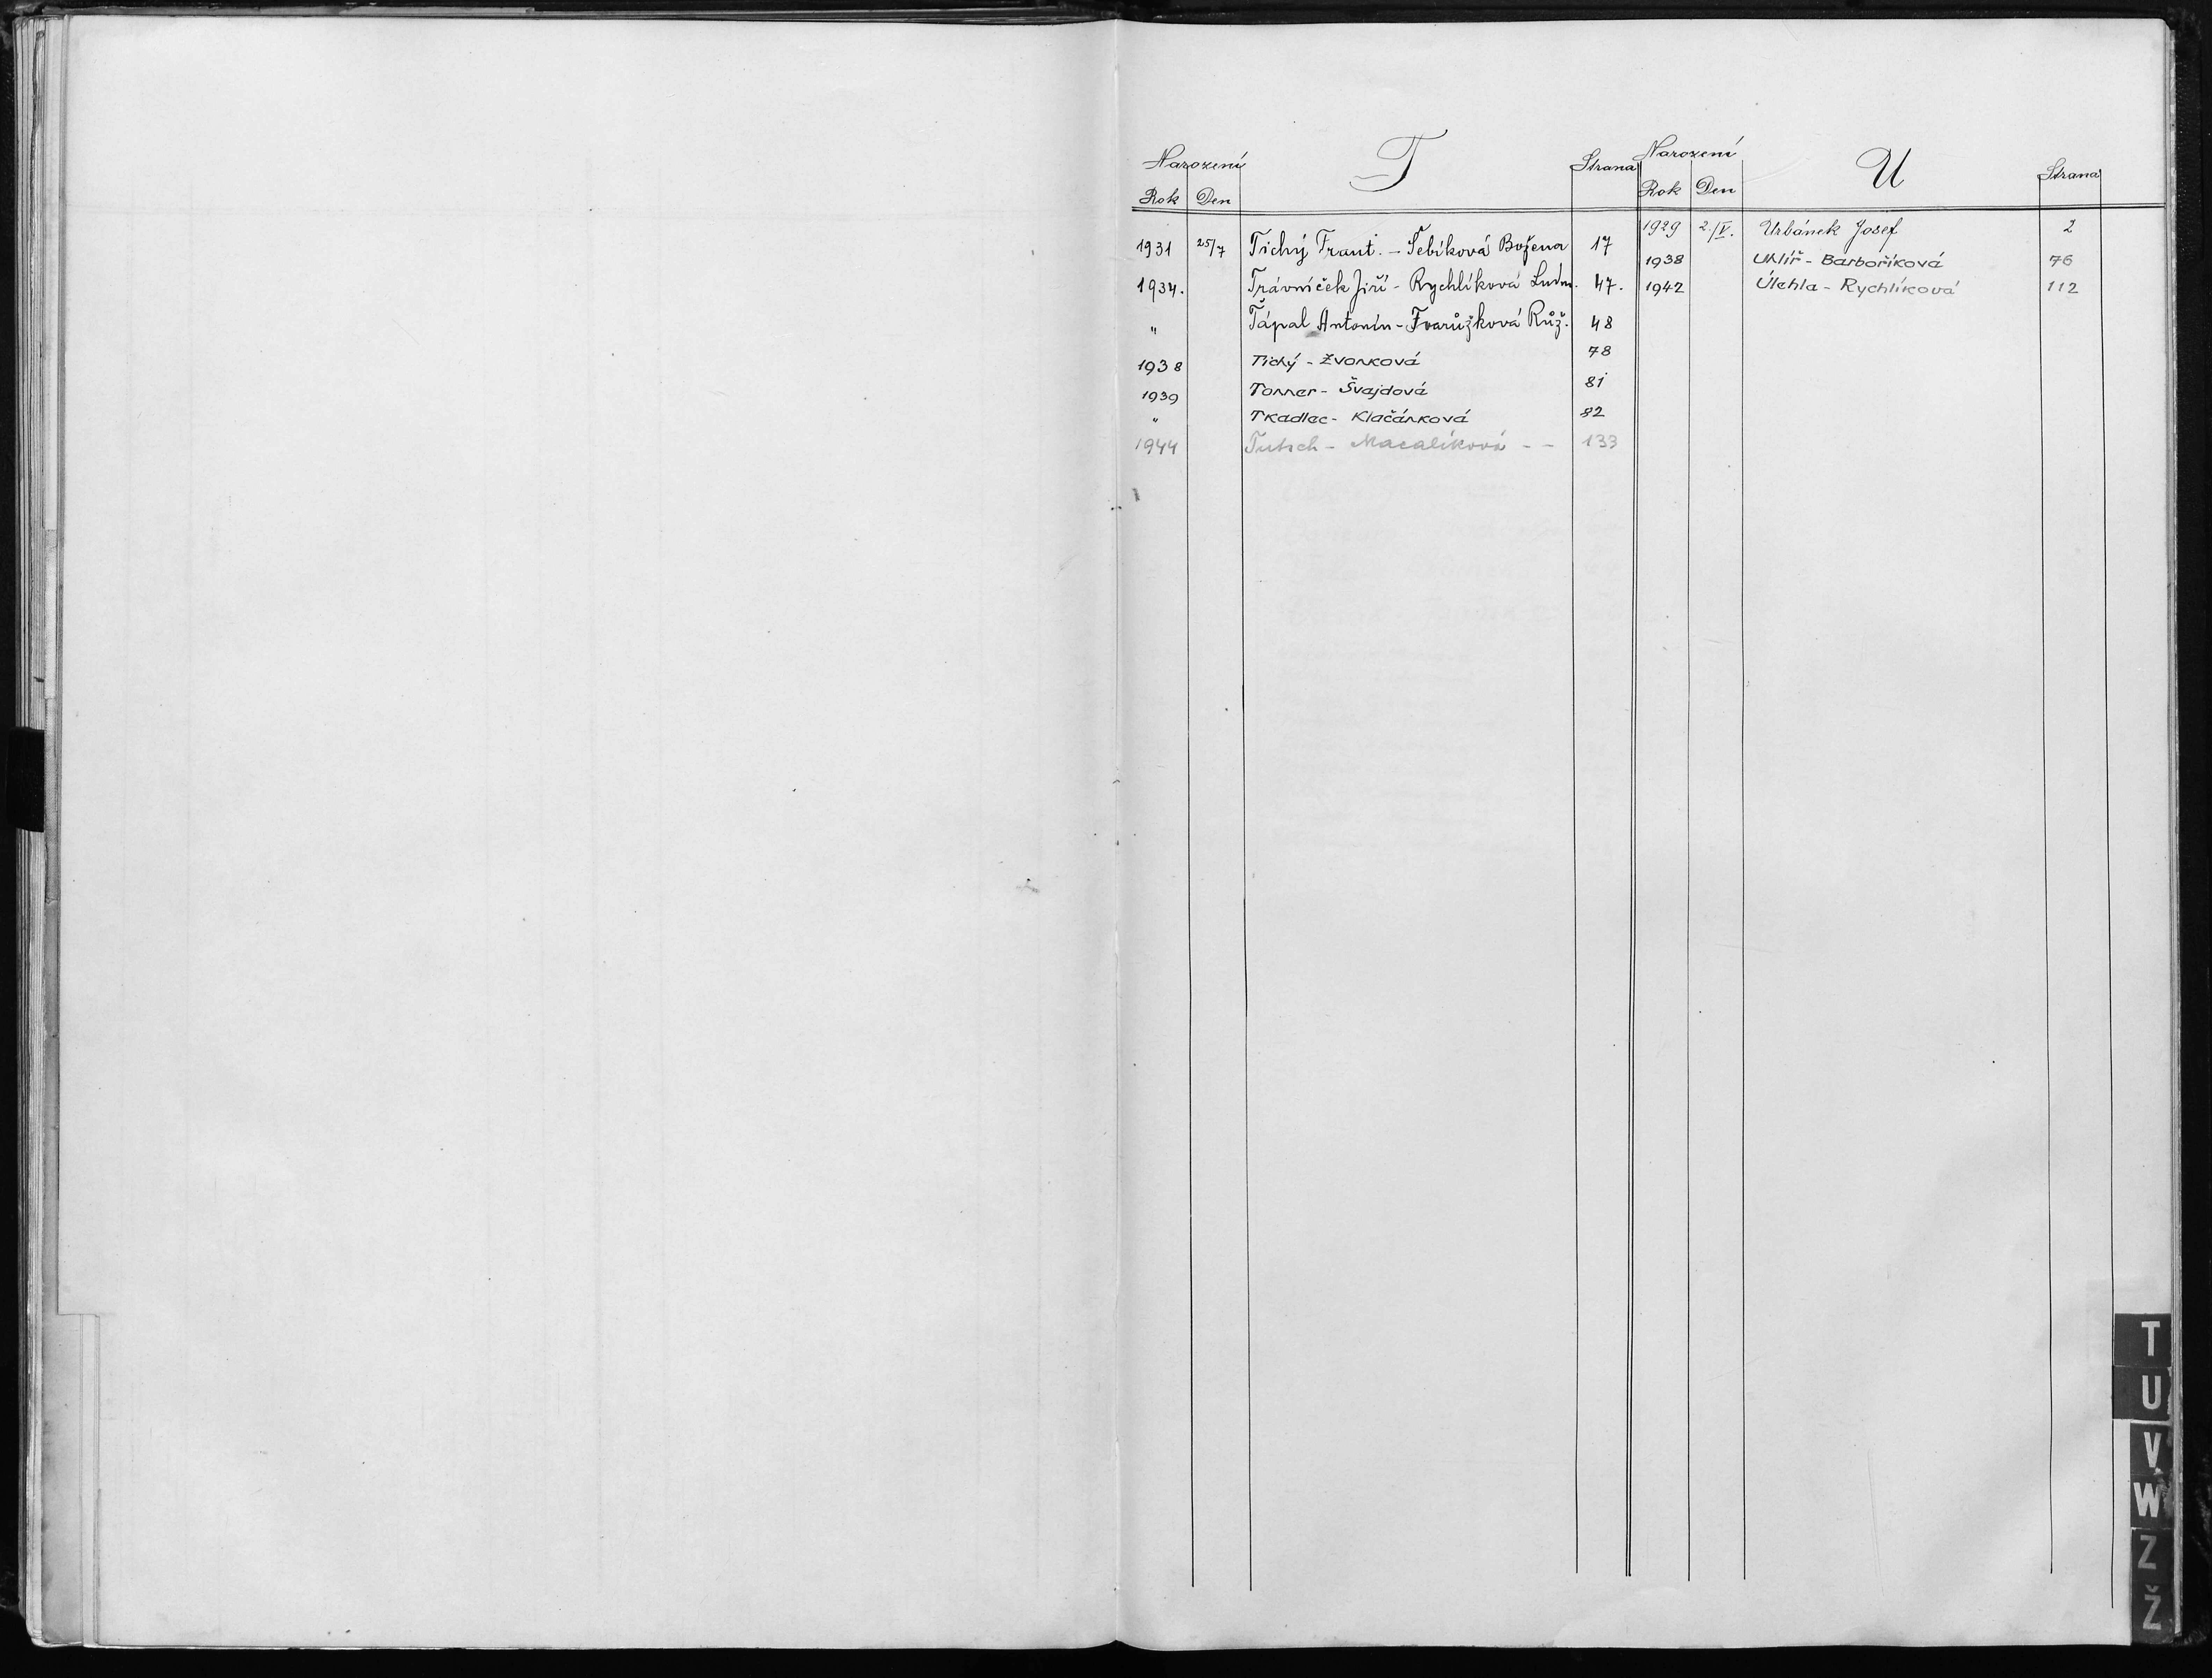 Narození T Strana
Rok Den
1931 25/7 Tichý Frant. - Šebíková Božena 17
1934. Trávníček Jiří - Rychlíková Ludm. 47.
" Ťápal Antonín - Tvarůžková Růž. 48
1938 Tichý - Žvonková 78
1939 Tonner - Švajdová 81
" Tkadlec - Klačánková 82
1944 Tutsch - Macalíková - - 133
Narození U Strana
Rok Den
1929 2./V. Urbánek Josef 2
1938 Uhlíř - Barboříková 76
1942 Úlehla - Rychlíková 112
T
U
V
W
Z
Ž